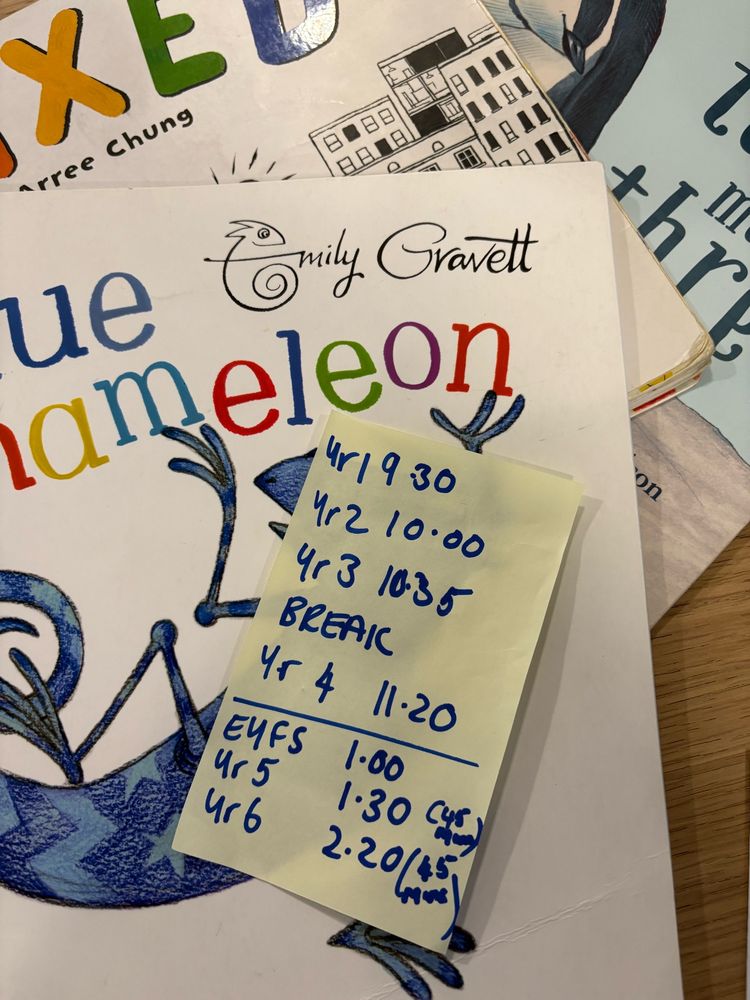 IXED
Arree Chung
Emily Gravett
ue
hameleon
Yr1 9.30
Yr2 10.00
Yr3 10.35
BREAK
Yr 4 11.20
EYFS 1.00
Yr5 1.30 (45 mins)
Yr6 2.20 (45 mins)
thre
on